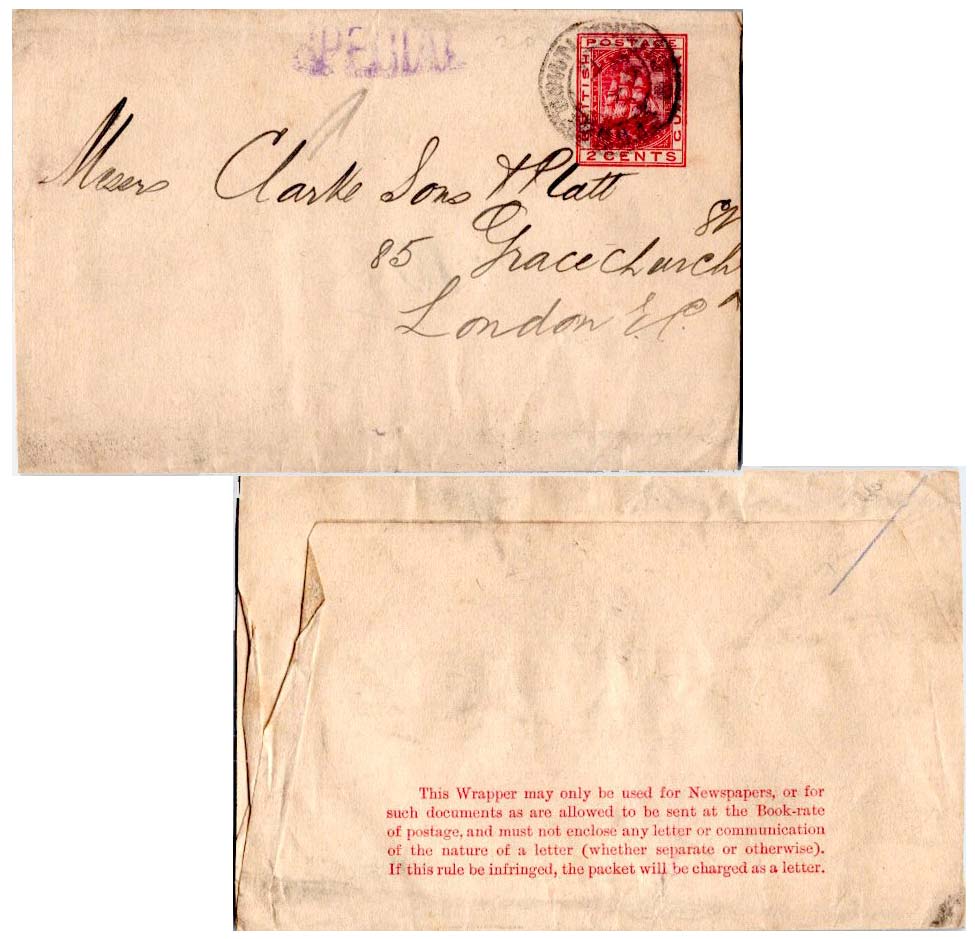 SPECIAL
POSTAGE
BRITISH
2 CENTS
Messrs Clarke Sons & Platt
85 Gracechurch
St
London E.C.
This Wrapper may only be used for Newspapers, or for
such documents as are allowed to be sent at the Book-rate
of postage, and must not enclose any letter or communication
of the nature of a letter (whether separate or otherwise).
If this rule be infringed, the packet will be charged as a letter.